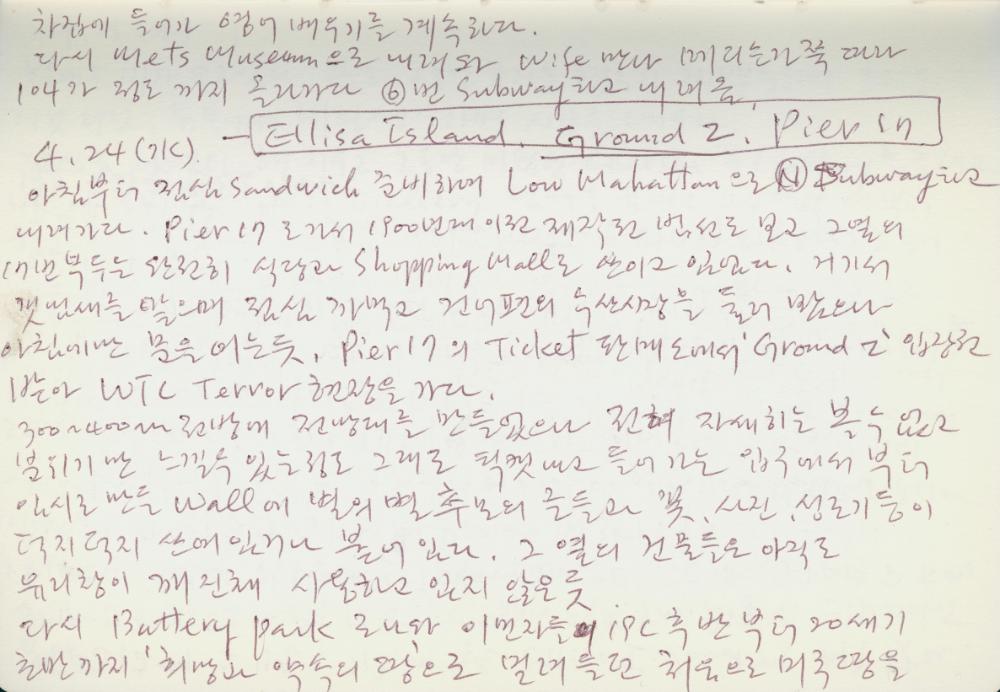 찻집에 들어가 영어 배우기를 계속하다.
다시 Mets Museum으로 내려와 Wife 만나
104가 정도 까지 올라가다 ⑥번 Subway타고 내려옴.
4, 24 (水). - Ellisa Island. Ground Z. Pier 17
아침부터 점심 Sandwich 준비하여 Low Mahattan으로 Ⓝ Subway타고
내려가다. Pier 17 로가서 1900년대 이전 제작된 범선도 보고 그옆의
17번 부두는 완전히 식당과 Shopping Mall로 쓰이고 있었다. 거기서
갯내음새를 맡으며 점심 까먹고 건너편의 수산시장을 들러 봤으나
아침에만 문을 여는듯. Pier 17 의 Ticket 판매소에서 'Ground Z' 입장권
받아 WTC Terror 현장을 가다.
300~400m 전방에 전망대를 만들었으나 전혀 자세히는 볼수 없고
분위기만 느낄수 있는정도 그래도 틱켓 내고 들어가는 입구에서 부터
임시로 만든 Wall에 별의 별 추모의 글들과 꽃, 사진, 성조기 등이
덕지덕지 쓰여있거나 붙어 있다. 그 옆의 건물들은 아직도
유리창이 깨진채 사용하고 있지 않은듯
다시 Battery Park 로나와 이민자들이 19C 후반부터 20세기
초반까지 '희망과 약속의 땅'으로 몰려들던 처음으로 미국땅을